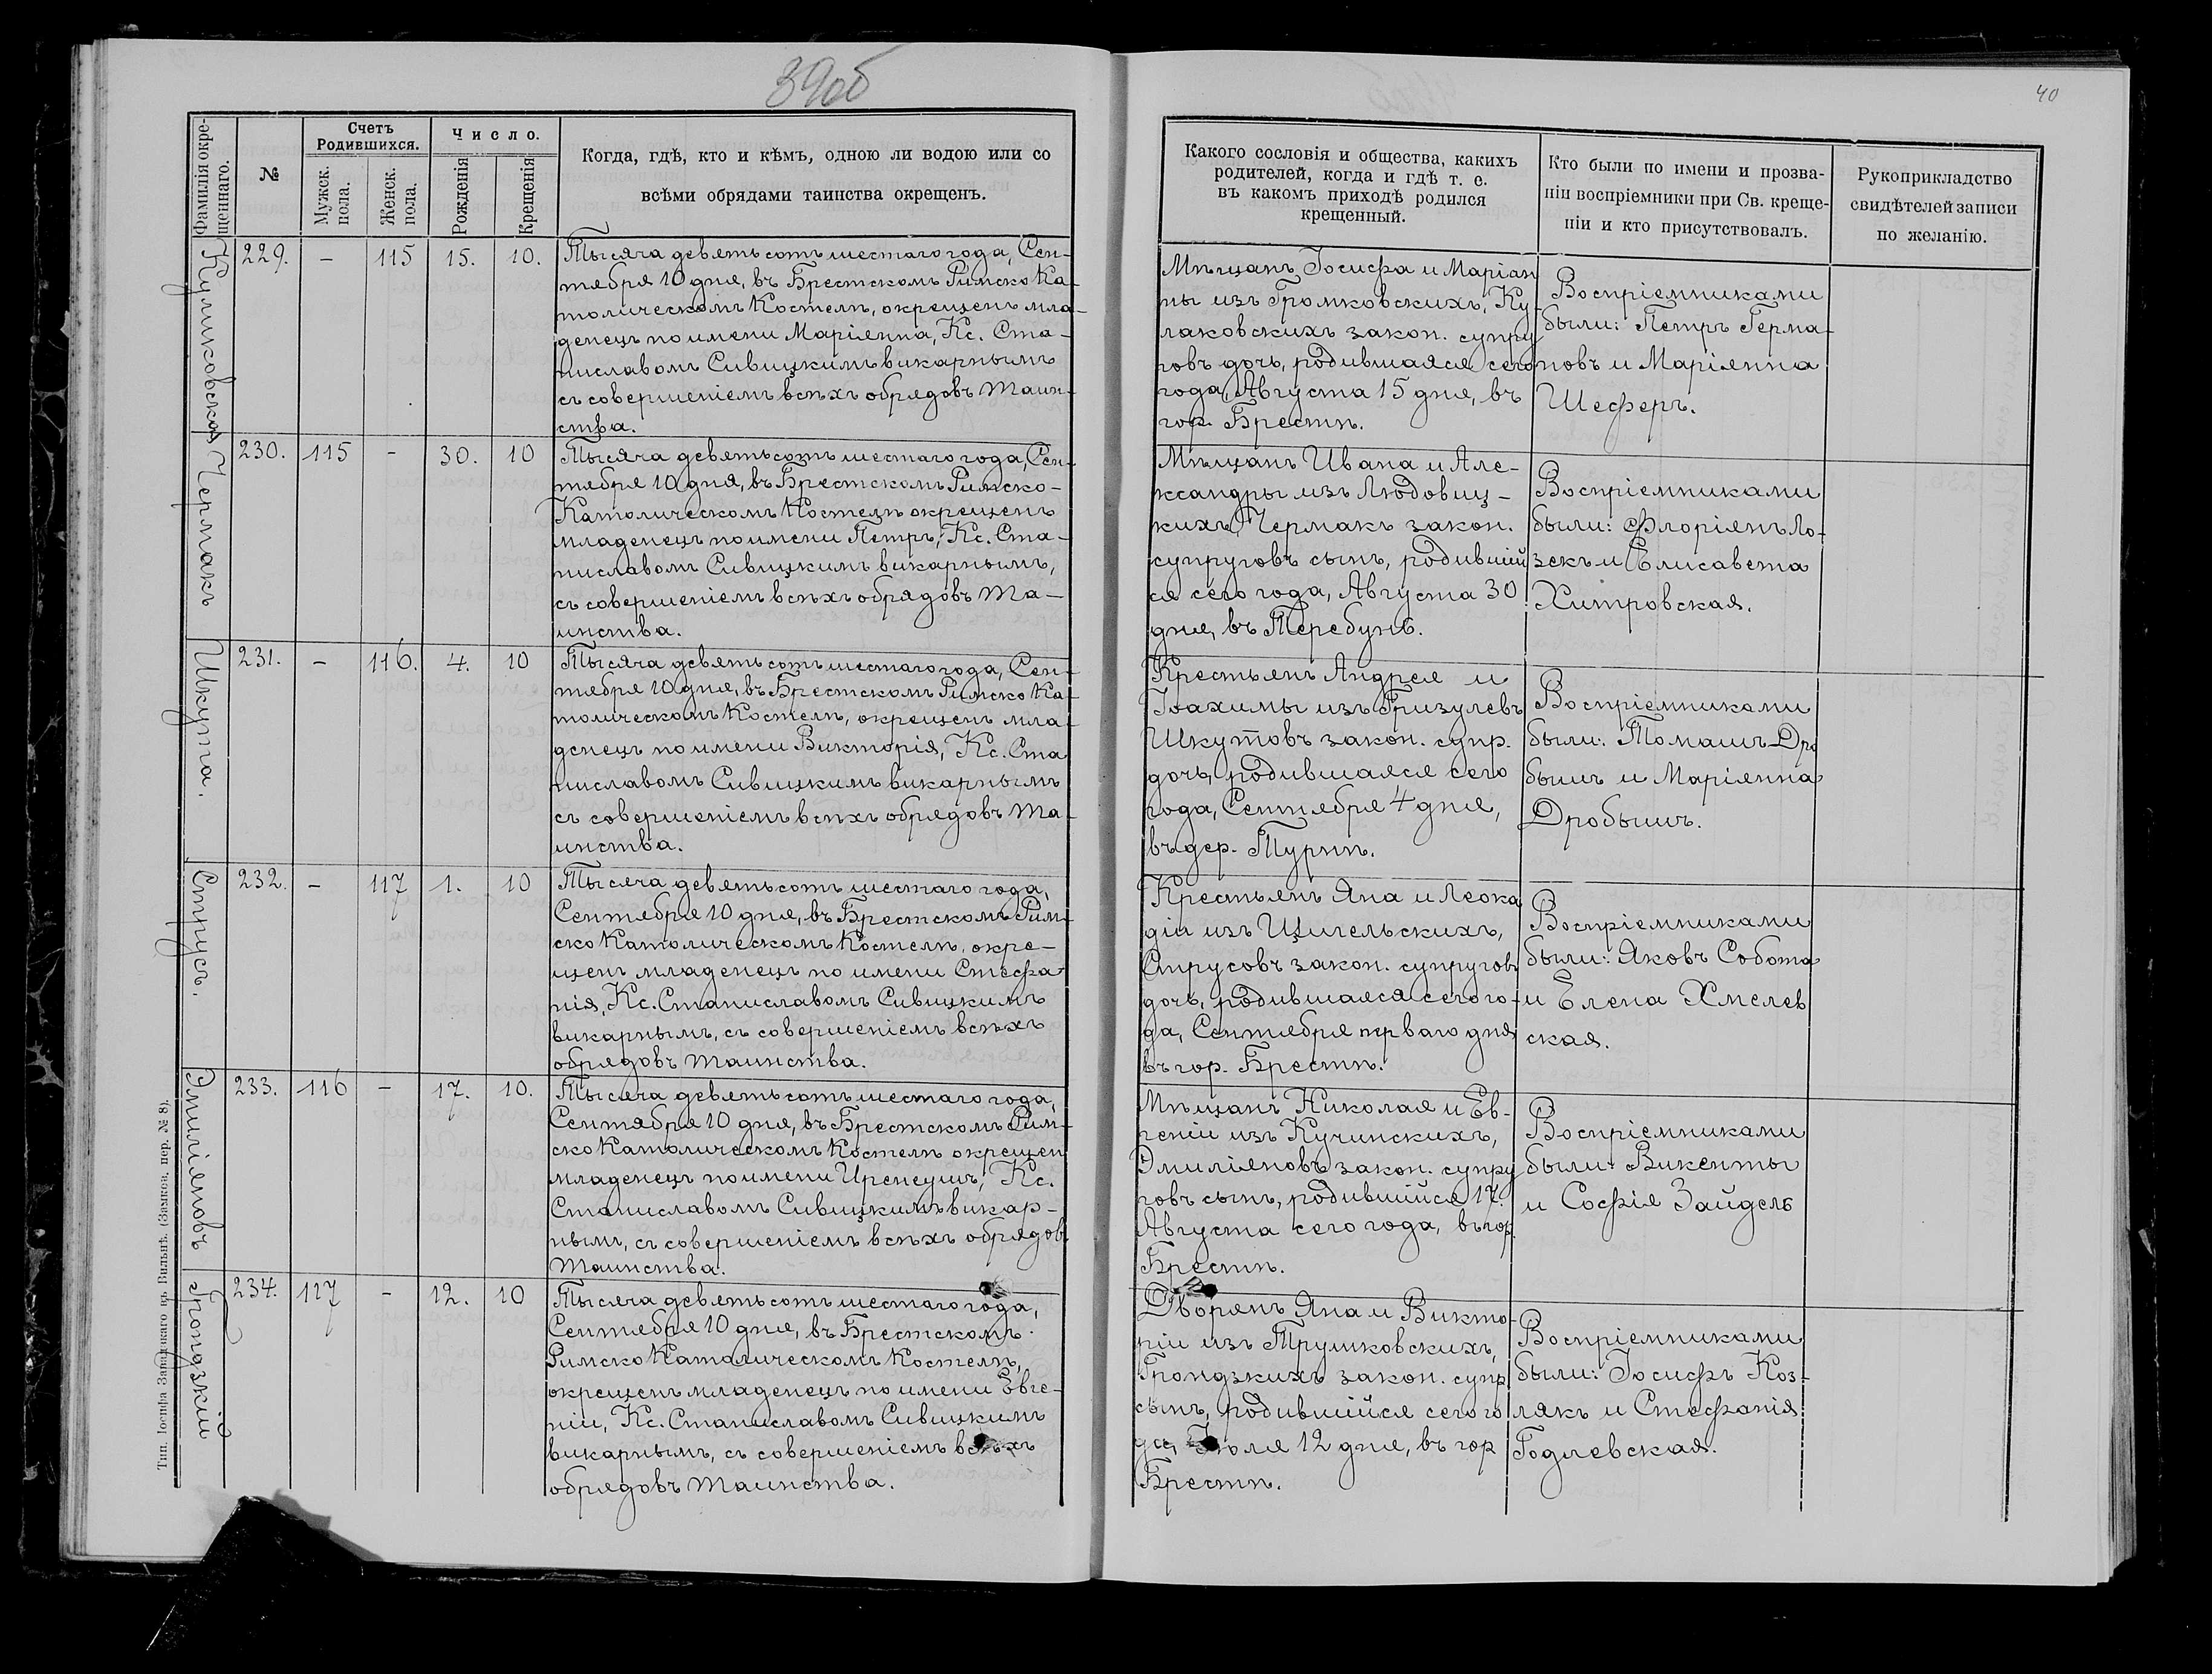 39об
40
Фамилія окре-
щеннаго.
№
Счетъ
Родившихся.
Мужск.
пола.
Женск.
пола.
Число.
Рожденія
Крещенія
Когда, гдѣ, кто и кѣмъ, одною ли водою или со
всѣми обрядами таинства окрещенъ.
Какого сословія и общества, какихъ
родителей, когда и гдѣ т. е.
въ какомъ приходѣ родился
крещенный.
Кто были по имени и прозва-
ніи воспріемники при Св. креще-
ніи и кто присутствовалъ.
Рукоприкладство
свидѣтелей записи
по желанію.
Куликовская
229. – 115 15. 10.
Тысяча девятьсотъ шестаго года, Сен-
тября 10 дня, въ Брестскомъ Римско Ка-
толическомъ Костелѣ, окрещенъ мла-
денецъ по имени Маріянна, Кс. Ста-
ниславомъ Сивицкимъ викарнымъ
съ совершеніемъ всѣхъ обрядовъ Таин-
ства.
Мѣщанъ Іосифа и Маріан
ны изъ Громковскихъ, Ку-
лаковскихъ закон. супру
говъ дочь, родившаяся сего
года, Августа 15 дня, въ
гор. Брестѣ.
Воспріемниками
были: Петръ Герма-
новъ и Маріянна
Шеферъ.
Чермакъ
230. 115 – 30. 10
Тысяча девятьсотъ шестаго года, Сен-
тября 10 дня, въ Брестскомъ Римско-
Католическомъ Костелѣ окрещенъ
младенецъ по имени Петръ, Кс. Ста-
ниславомъ Сивицкимъ викарнымъ,
съ совершеніемъ всѣхъ обрядовъ Та-
инства.
Мѣщанъ Ивана и Але-
ксандры изъ Людовиц-
кихъ, Чермакъ закон.
супруговъ сынъ, родившій
ся сего года, Августа 30
дня, въ Теребунѣ.
Воспріемниками
были: Флоріянъ Ло-
зекъ и Елисавета
Хитровская.
Шкута.
231. – 116. 4. 10
Тысяча девятьсотъ шестаго года, Сен-
тября 10 дня, въ Брестскомъ Римско Ка-
толическомъ Костелѣ, окрещенъ мла-
денецъ по имени Викторія, Кс. Ста
ниславомъ Сивицкимъ викарнымъ
съ совершеніемъ всѣхъ обрядовъ Та-
инства.
Крестьянъ Андрея и
Іоахимы изъ Гризулевъ
Шкутовъ закон. супр.
дочь, родившаяся сего
года, Сентября 4 дня,
въ дер. Турнѣ.
Воспріемниками
были: Томашъ Дро
бышъ и Маріянна
Дробышъ.
Струсъ.
232. – 117 1. 10
Тысяча девятьсотъ шестаго года,
Сентября 10 дня, въ Брестскомъ Рим-
ско Католическомъ Костелѣ, окре-
щенъ младенецъ по имени Стефа-
нія, Кс. Станиславомъ Сивицкимъ
викарнымъ, съ совершеніемъ всѣхъ
обрядовъ таинства.
Крестьянъ Яна и Леока
діи изъ Щигельскихъ,
Струсовъ закон. супруговъ
дочь, родившаяся сего го-
да, Сентября перваго дня
въ гор. Брестѣ.
Воспріемниками
были: Яковъ Собота
и Елена Хмелев
ская.
Эмиліяновъ
233. 116 – 17. 10.
Тысяча девятьсотъ шестаго года,
Сентября 10 дня, въ Брестскомъ Рим-
ско Католическомъ Костелѣ окрещен
младенецъ по имени Иренеушъ, Кс.
Станиславомъ Сивицкимъ викар-
нымъ, съ совершеніемъ всѣхъ обрядов
Таинства.
Мѣщанъ Николая и Ев-
геніи изъ Кучинскихъ,
Эмиліяновъ закон. супру
говъ сынъ, родившійся 17
Августа сего года, въ гор.
Брестѣ.
Воспріемниками
были: Викенты
и Софія Зайдель
Грондзкій
234. 117 – 12. 10
Тысяча девятьсотъ шестаго года,
Сентября 10 дня, въ Брестскомъ
Римско Католическомъ Костелѣ,
окрещенъ младенецъ по имени Евге-
ній, Кс. Станиславомъ Сивицкимъ
викарнымъ, съ совершеніемъ всѣхъ
обрядовъ таинства.
Дворянъ Яна и Викто-
ріи изъ Трушковскихъ,
Грондзкихъ закон. супр.
сынъ, родившійся сего го
да, Іюля 12 дня, въ гор
Брестѣ.
Воспріемниками
были: Іосифъ Коз-
лякъ и Стефанія
Годлевская.
Тип. Іосифа Завадзкаго въ Вильнѣ. (Замков. пер. № 8).